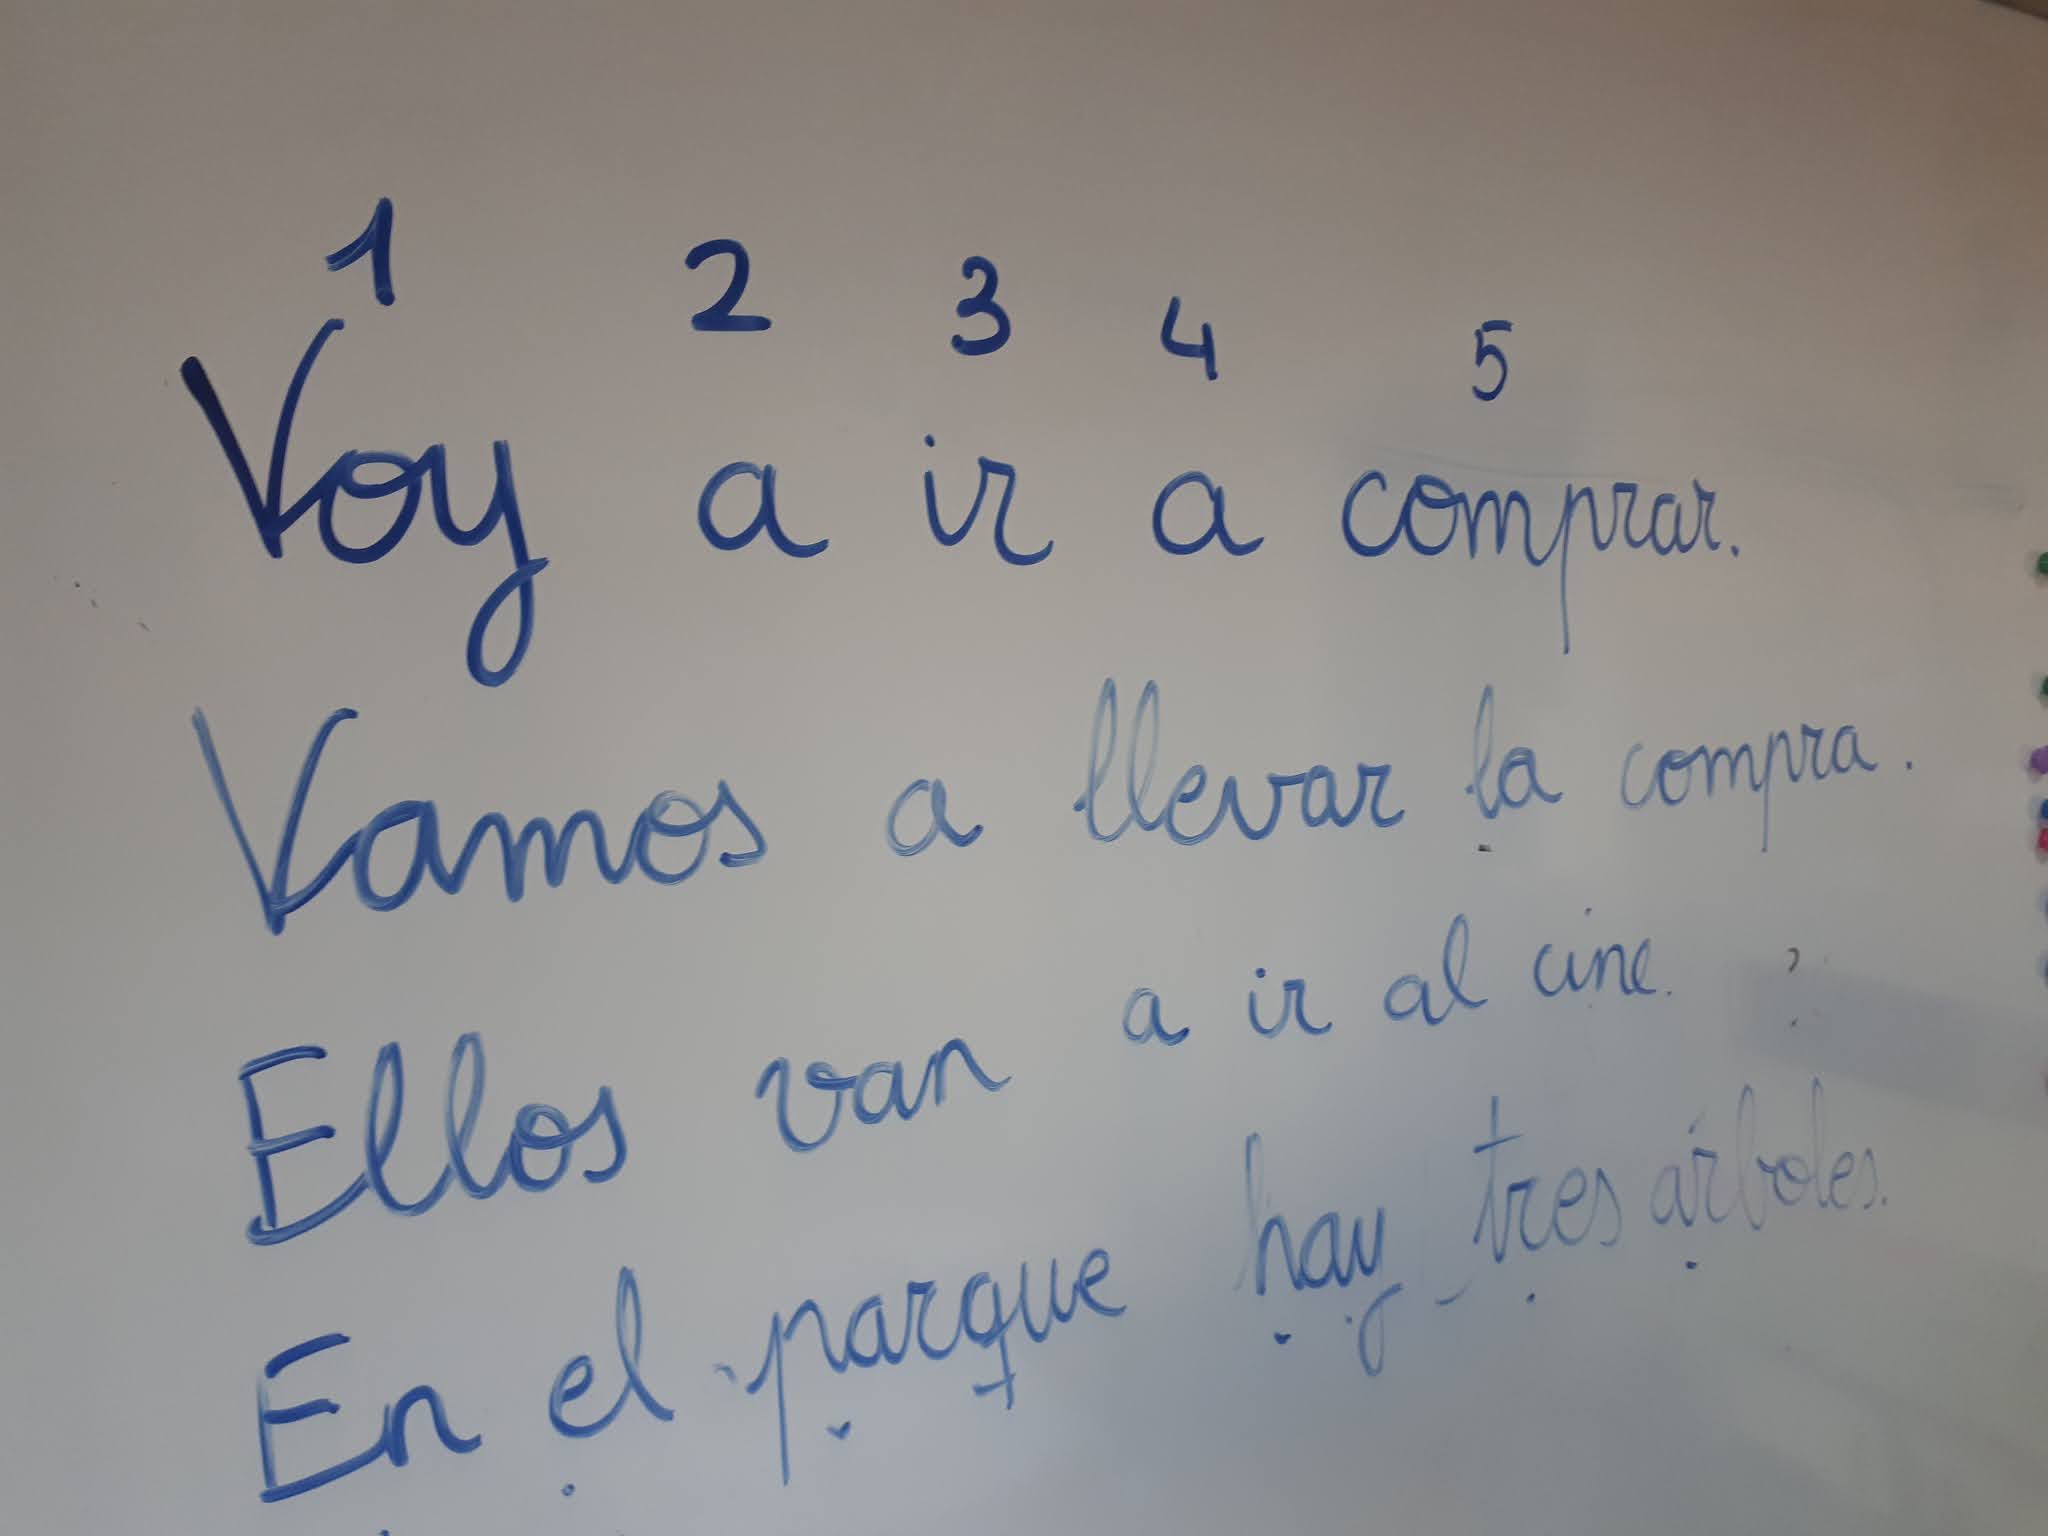 1 2 3 4 5
Voy a ir a comprar.
Vamos a llevar la compra.
Ellos van a ir al cine.
En el parque hay tres árboles.